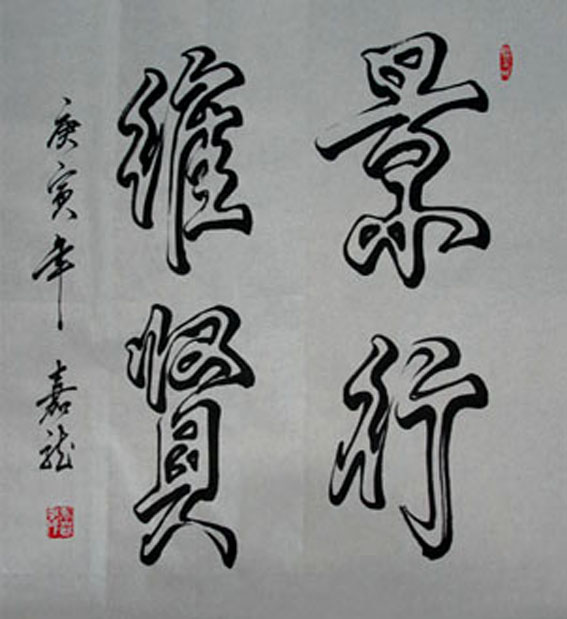 景行
維賢
庚寅年 嘉龙